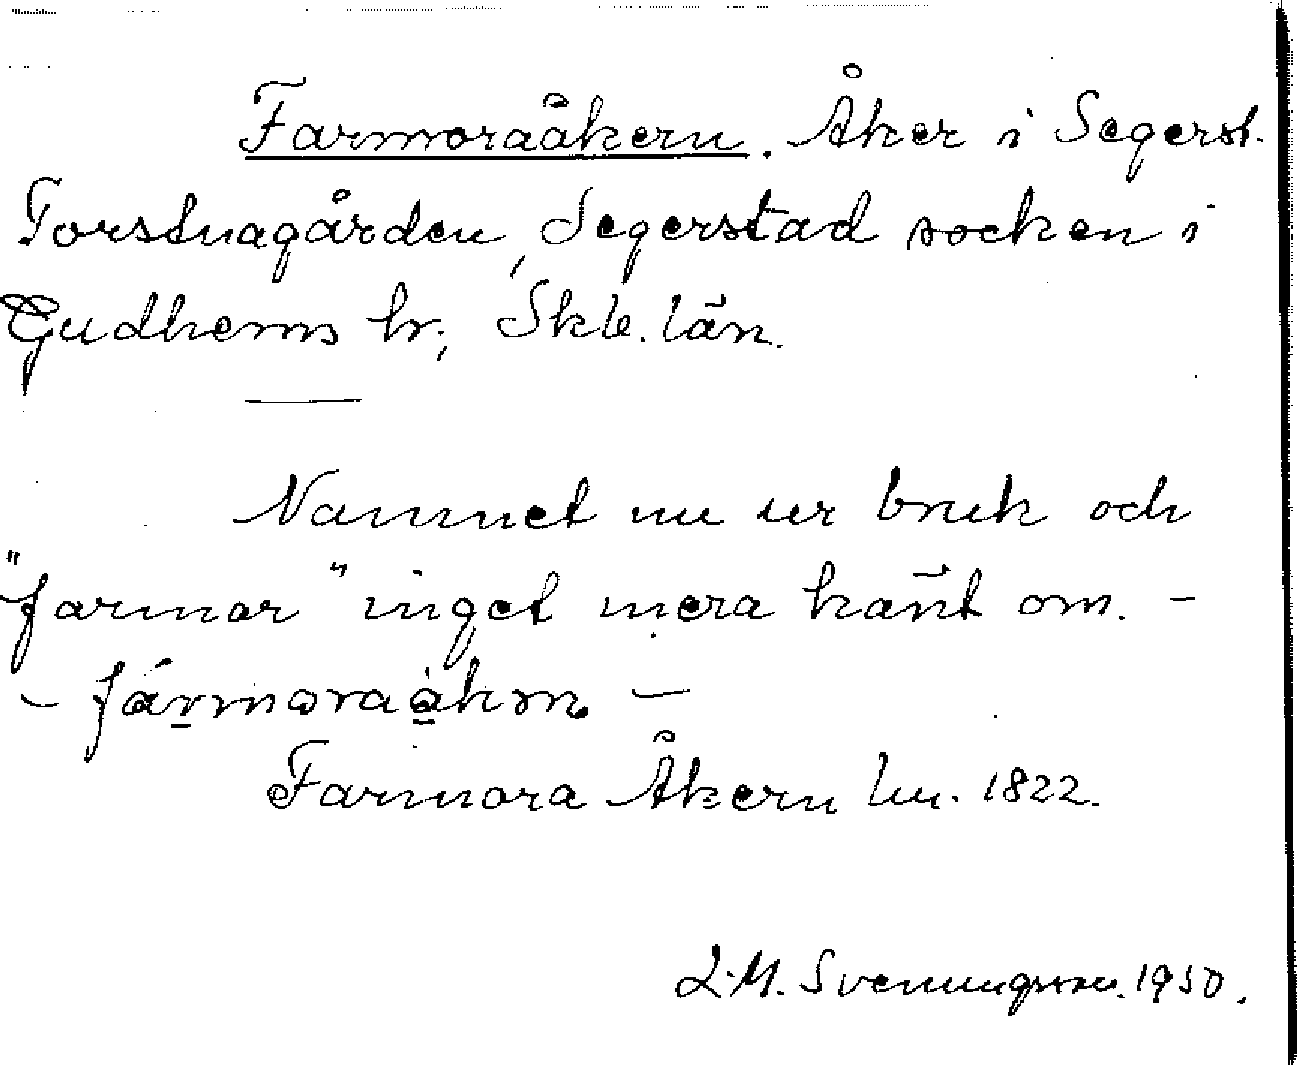 Farmoraåkern. Åker i Segerst.
Torstnagården, Segerstad socken i
Gudhems hr, Skb. län.
Namnet nu ur bruk och
"farmor" inget mera känt om. -
- fármoraàkrn -
Farmora Åkern lm. 1822.
L.M. Svenungsson. 1950.